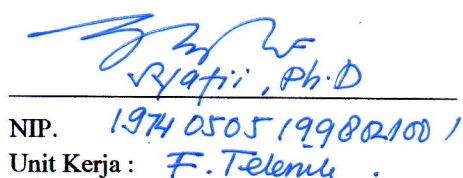 Syafii, Ph.D
NIP. 19740505 199802 1001
Unit Kerja : F. Teknik .